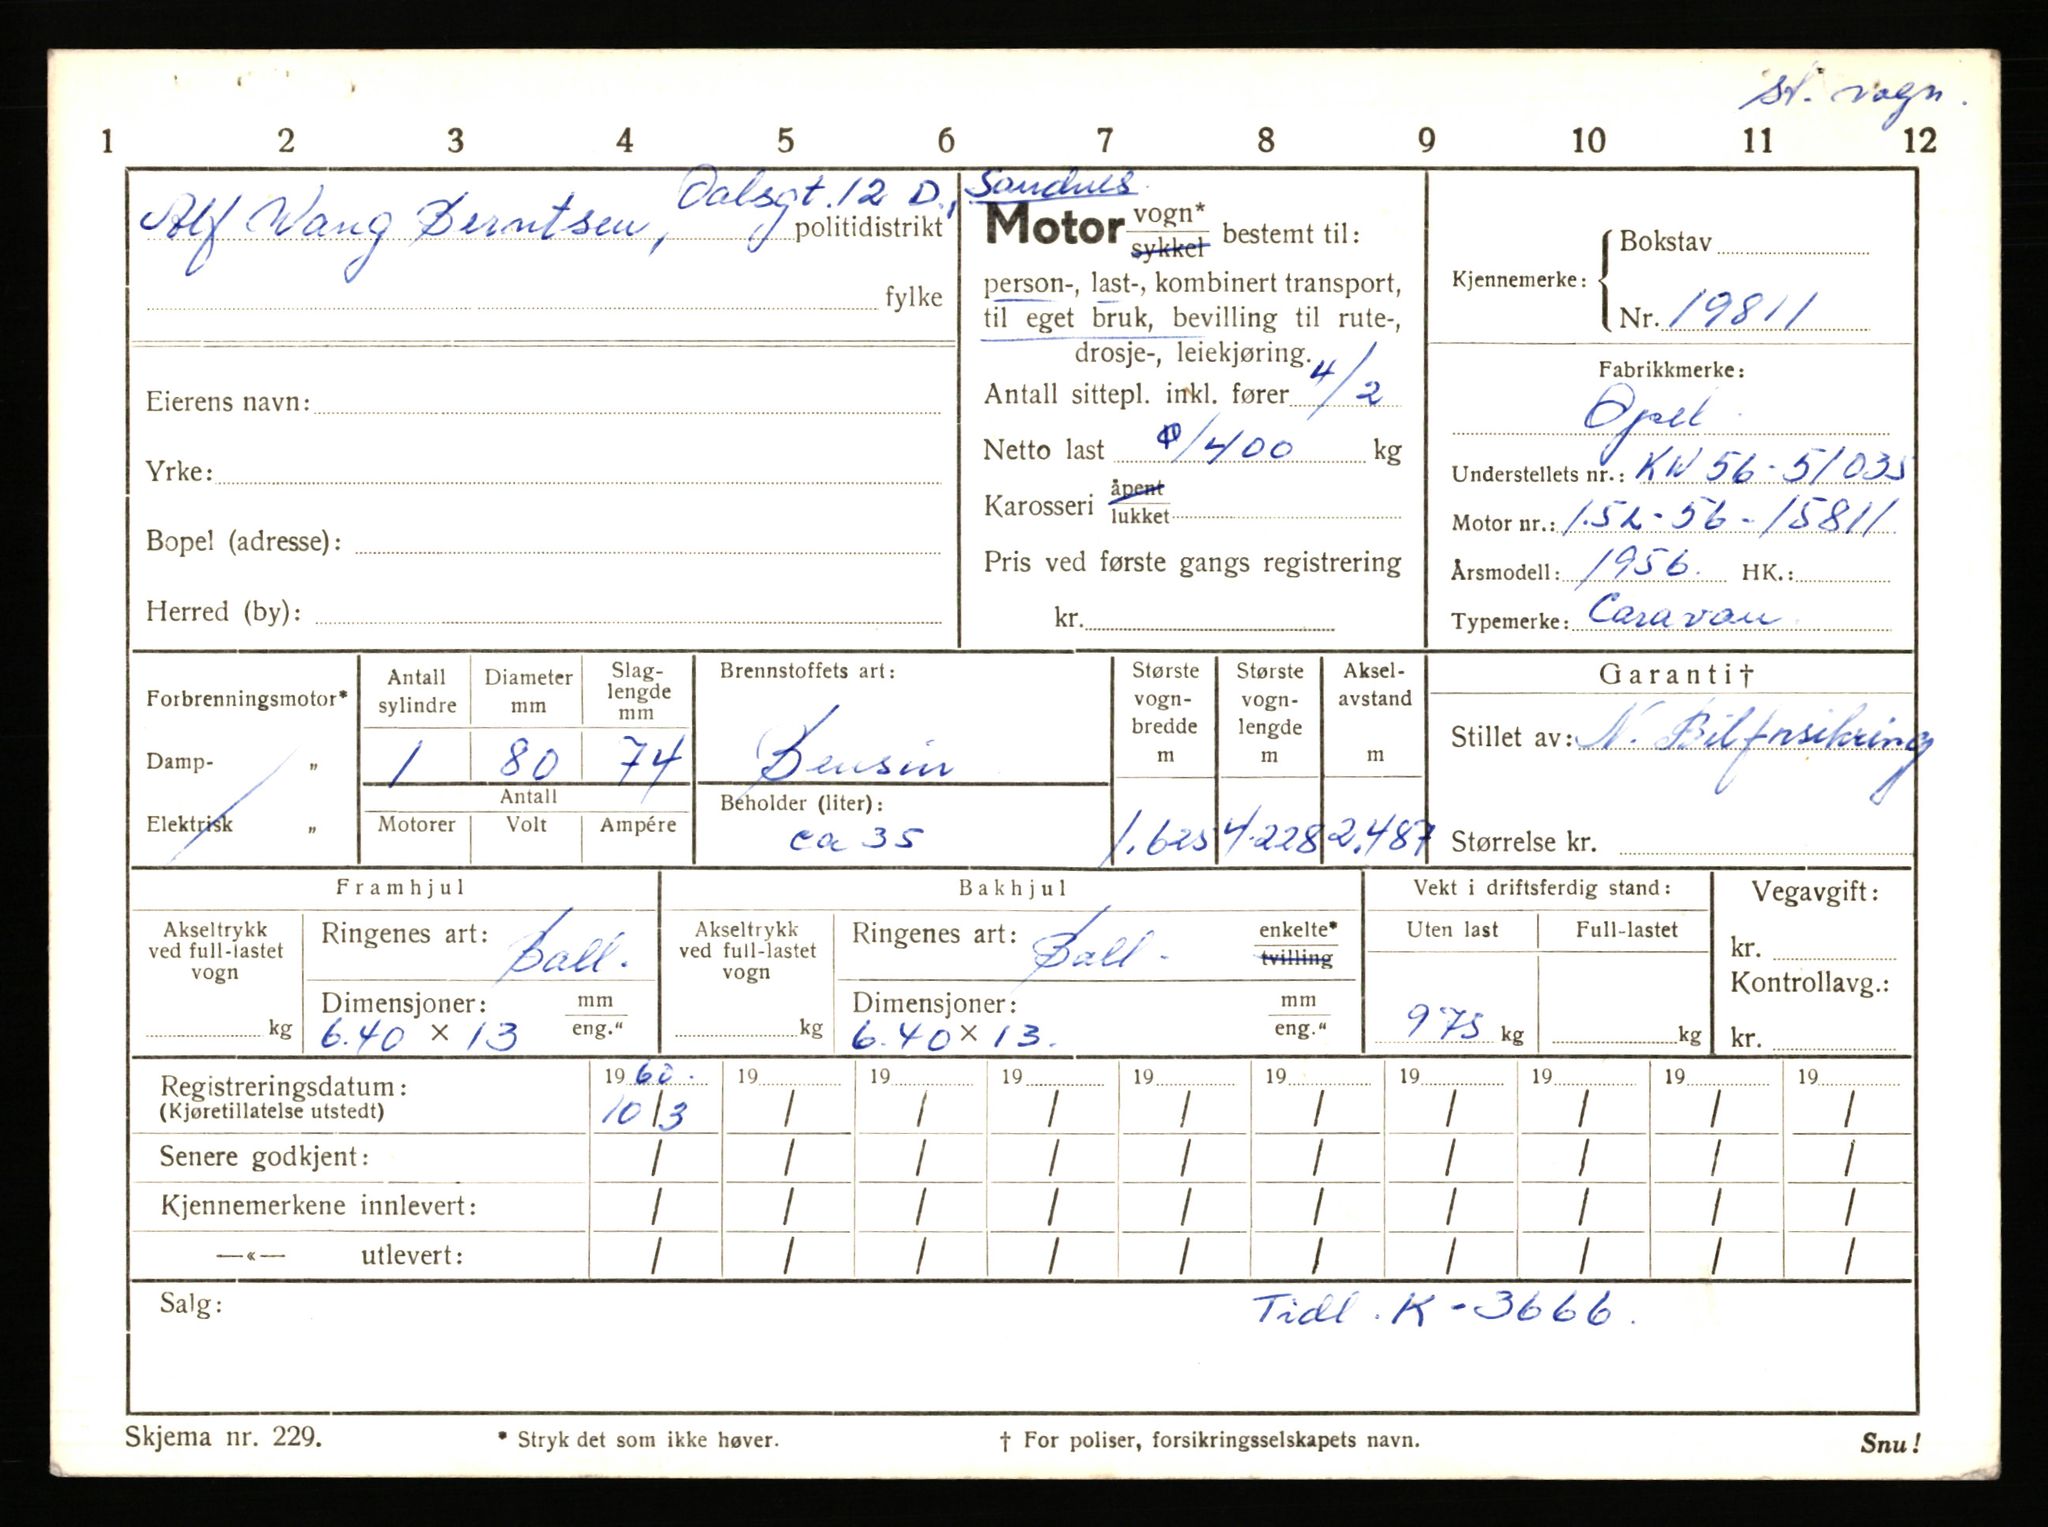 st. vogn.
1 2 3 4 5 6 7 8 9 10 11 12
Alf Wang Berntsen, Dalsgt. 12 D., Sandnes.
politidistrikt
fylke
Eierens navn:
Yrke:
Bopel (adresse):
Herred (by):
Motor vogn* sykkel bestemt til:
person-, last-, kombinert transport,
til eget bruk, bevilling til rute-,
drosje-, leiekjøring.
Antall sittepl. inkl. fører 4/2
Netto last 0/400 kg
Karosseri åpent lukket
Pris ved første gangs registrering
kr.
Kjennemerke: Bokstav
Nr. 19811
Fabrikkmerke:
Opel
Understellets nr.: KW 56-51035
Motor nr.: 1.5L-56-15811
Årsmodell: 1956. HK.:
Typemerke: Caravan
Forbrenningsmotor*
Damp- „
Elektrisk „
Antall sylindre
Diameter mm
Slag- lengde mm
1 80 74
Antall
Motorer Volt Ampére
Brennstoffets art:
Bensin
Beholder (liter):
ca 35
Største vogn- bredde m
1.625
Største vogn- lengde m
4.228
Aksel- avstand m
2.487
Garanti†
Stillet av: N. Bilforsikring
Størrelse kr.
Framhjul
Akseltrykk ved full-lastet vogn
kg
Ringenes art: Ball.
Dimensjoner: mm eng."
6.40 x 13
Bakhjul
Akseltrykk ved full-lastet vogn
kg
Ringenes art: Ball. enkelte* tvilling
Dimensjoner: mm eng."
6.40 x 13.
Vekt i driftsferdig stand:
Uten last Full-lastet
975 kg kg
Vegavgift:
kr.
Kontrollavg.:
kr.
Registreringsdatum: 1960. 19 19 19 19 19 19 19 19 19
(Kjøretillatelse utstedt) 10/3 / / / / / / / / /
Senere godkjent: / / / / / / / / / /
Kjennemerkene innlevert: / / / / / / / / / /
—«— utlevert: / / / / / / / / / /
Salg: Tidl. K-3666.
Skjema nr. 229. * Stryk det som ikke høver. † For poliser, forsikringsselskapets navn. Snu!